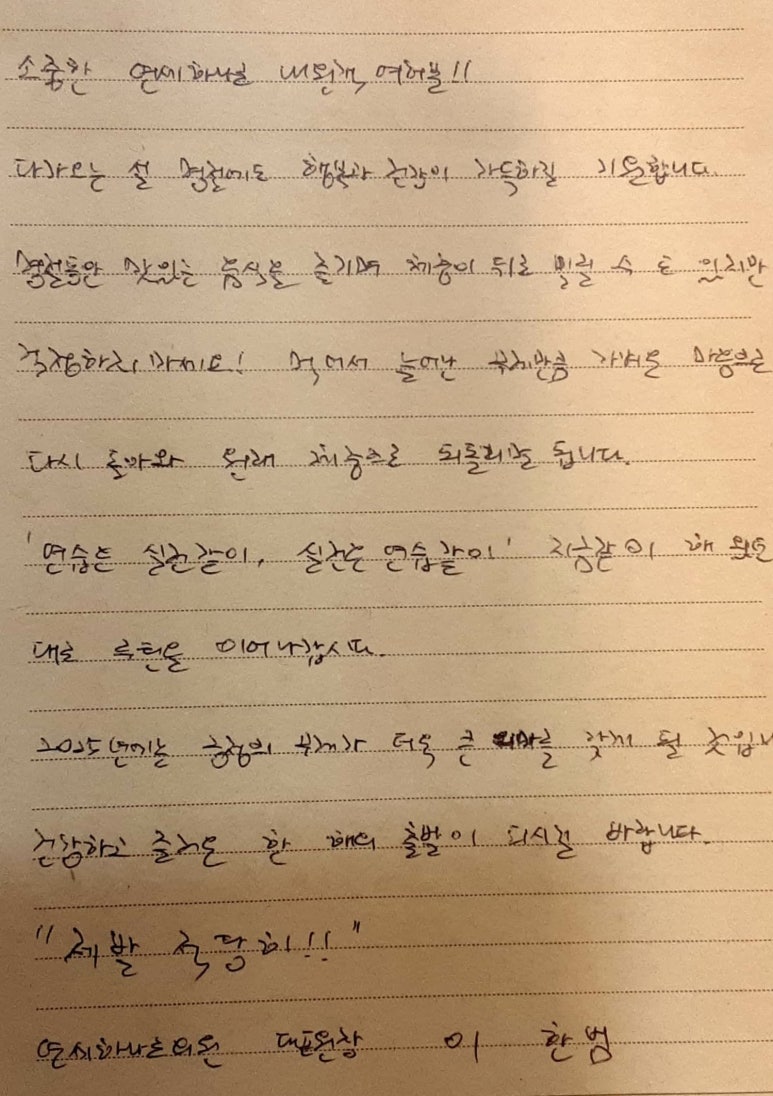 소중한 연세하나로 내원객 여러분!!
다가오는 설 명절에도 행복과 건강이 가득하길 기원합니다.
명절동안 맛있는 음식을 즐기며 체중이 뒤로 밀릴 수 도 있지만
걱정하지 마세요! 먹어서 늘어난 무게만큼 가벼운 마음으로
다시 돌아와 원래 체중으로 되돌리면 됩니다.
'연습은 실전같이, 실전은 연습같이' 지금같이 해 왔던
대로 루틴을 이어나갑시다.
2025년에는 긍정의 무게가 더욱 큰 의미를 갖게 될 것입니
건강하고 즐거운 한 해의 출발이 되시길 바랍니다.
"제발 적당히!!"
연세하나로의원 대표원장 이 한 범